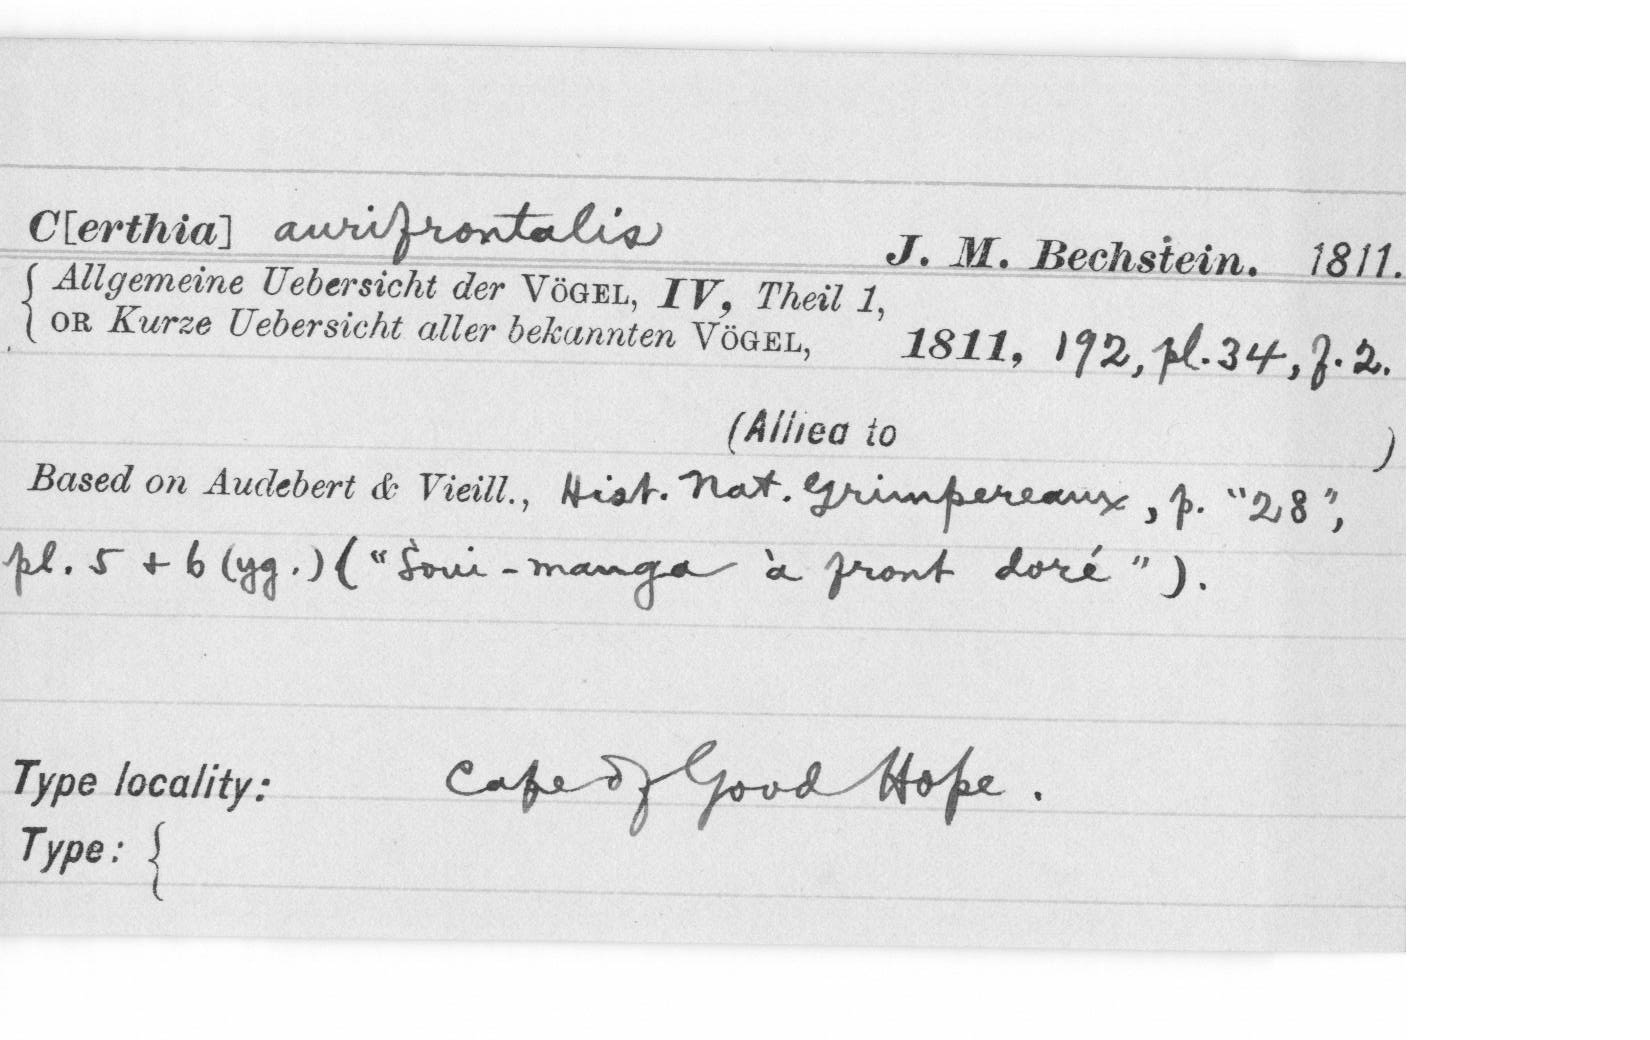 C[erthia] aurifrontalis J. M. Bechstein. 1811.
{ Allgemeine Uebersicht der VÖGEL, IV, Theil 1,
OR Kurze Uebersicht aller bekannten VÖGEL, 1811, 192, pl. 34, f. 2.
(Allied to )
Based on Audebert & Vieill., Hist. Nat. Grimpereaux, p. "28",
pl. 5 + 6 (yg.) ("Soui-manga à front doré").
Type locality: Cape of Good Hope.
Type: {